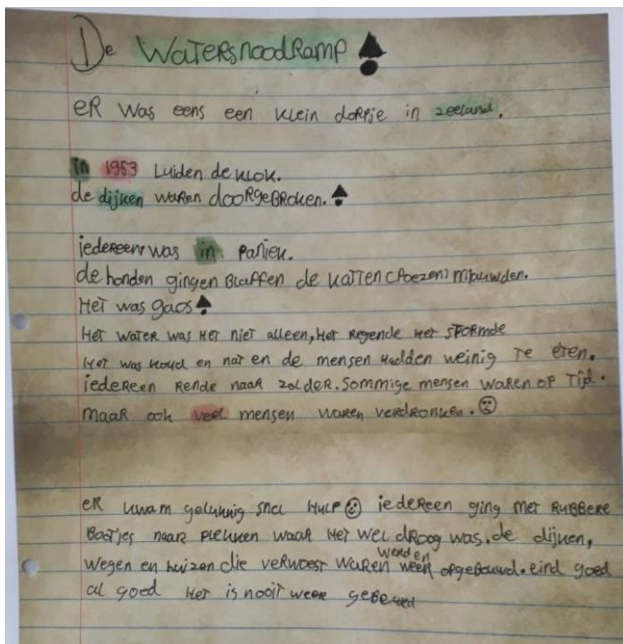 De WATERSnoodRAMP!
eR was eens een klein dorpje in zeeland.
in 1953 Luiden de klok.
de dijken waren dooRgeBRoken.!
iedereen was in paniek.
de honden gingen Blaffen de katten (Poezen) miauwden.
HeT was gaos!
HeT waTeR was HeT nieT alleen, HeT Regende HeT sTormde
HeT was koud en naT en de mensen Hadden weinig Te eTen.
iedeReen Rende naaR zolder. Sommige mensen waRen op Tijd.
maaR ook veel mensen waren verdronken. ☹
eR kwam gelukkig snel HulP ☺ iedeReen ging meT RuBBeRe
BooTjes naaR plekken waaR HeT wel droog was. de dijken,
wegen en huizen die verwoesT waRen werden weeR opgeBouwd. eind goed
al goed HeT is nooiT weer geBeurd